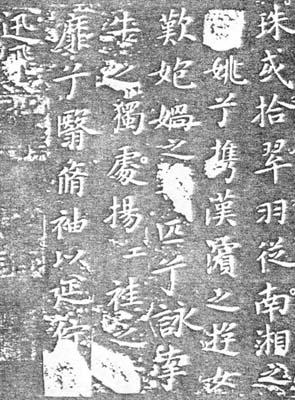 珠或拾翠羽從南湘之
姚兮携漢濱之遊女
歎媧之匹兮詠牽
牛之獨處揚袿之
靡兮翳脩袖以延佇
迅飛